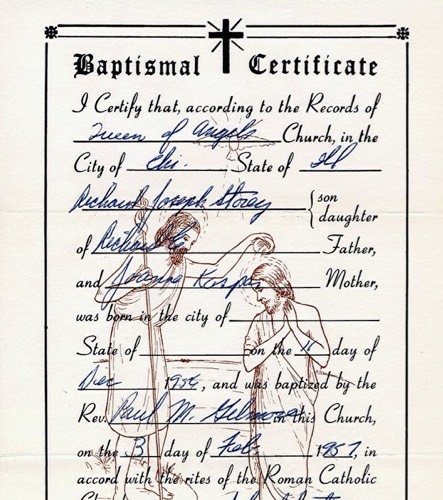 Baptismal Certificate
I Certify that, according to the Records of
Queen of Angels Church, in the
City of Chi. State of Ill
Richard Joseph Storey { son
daughter
of Richard Father,
and Joanna Kasper Mother,
was born in the city of
State of on the day of
Dec 1956, and was baptized by the
Rev. Paul M. in this Church,
on the 3 day of Feb 1957, in
accord with the rites of the Roman Catholic